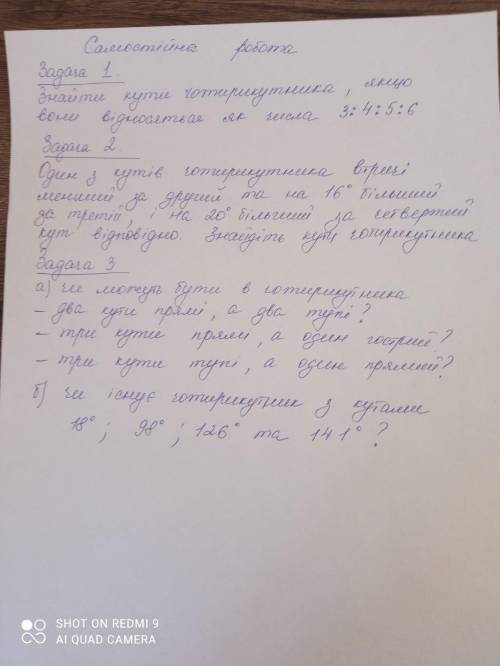 Самостійна робота
Задача 1.
Знайти кути чотирикутника, якщо
вони відносяться як числа 3:4:5:6
Задача 2.
Один з кутів чотирикутника втричі
менший за другий та на 16° більший
за третій, і на 20° більший за четвертий
кут відповідно. Знайдіть кути чотирикутника
Задача 3
а) чи можуть бути в чотирикутника
– два кути прямі, а два тупі?
– три кути прямі, а один гострий?
– три кути тупі, а один прямий?
б) чи існує чотирикутник з кутами
18°; 98°; 126° та 141°?
SHOT ON REDMI 9
AI QUAD CAMERA